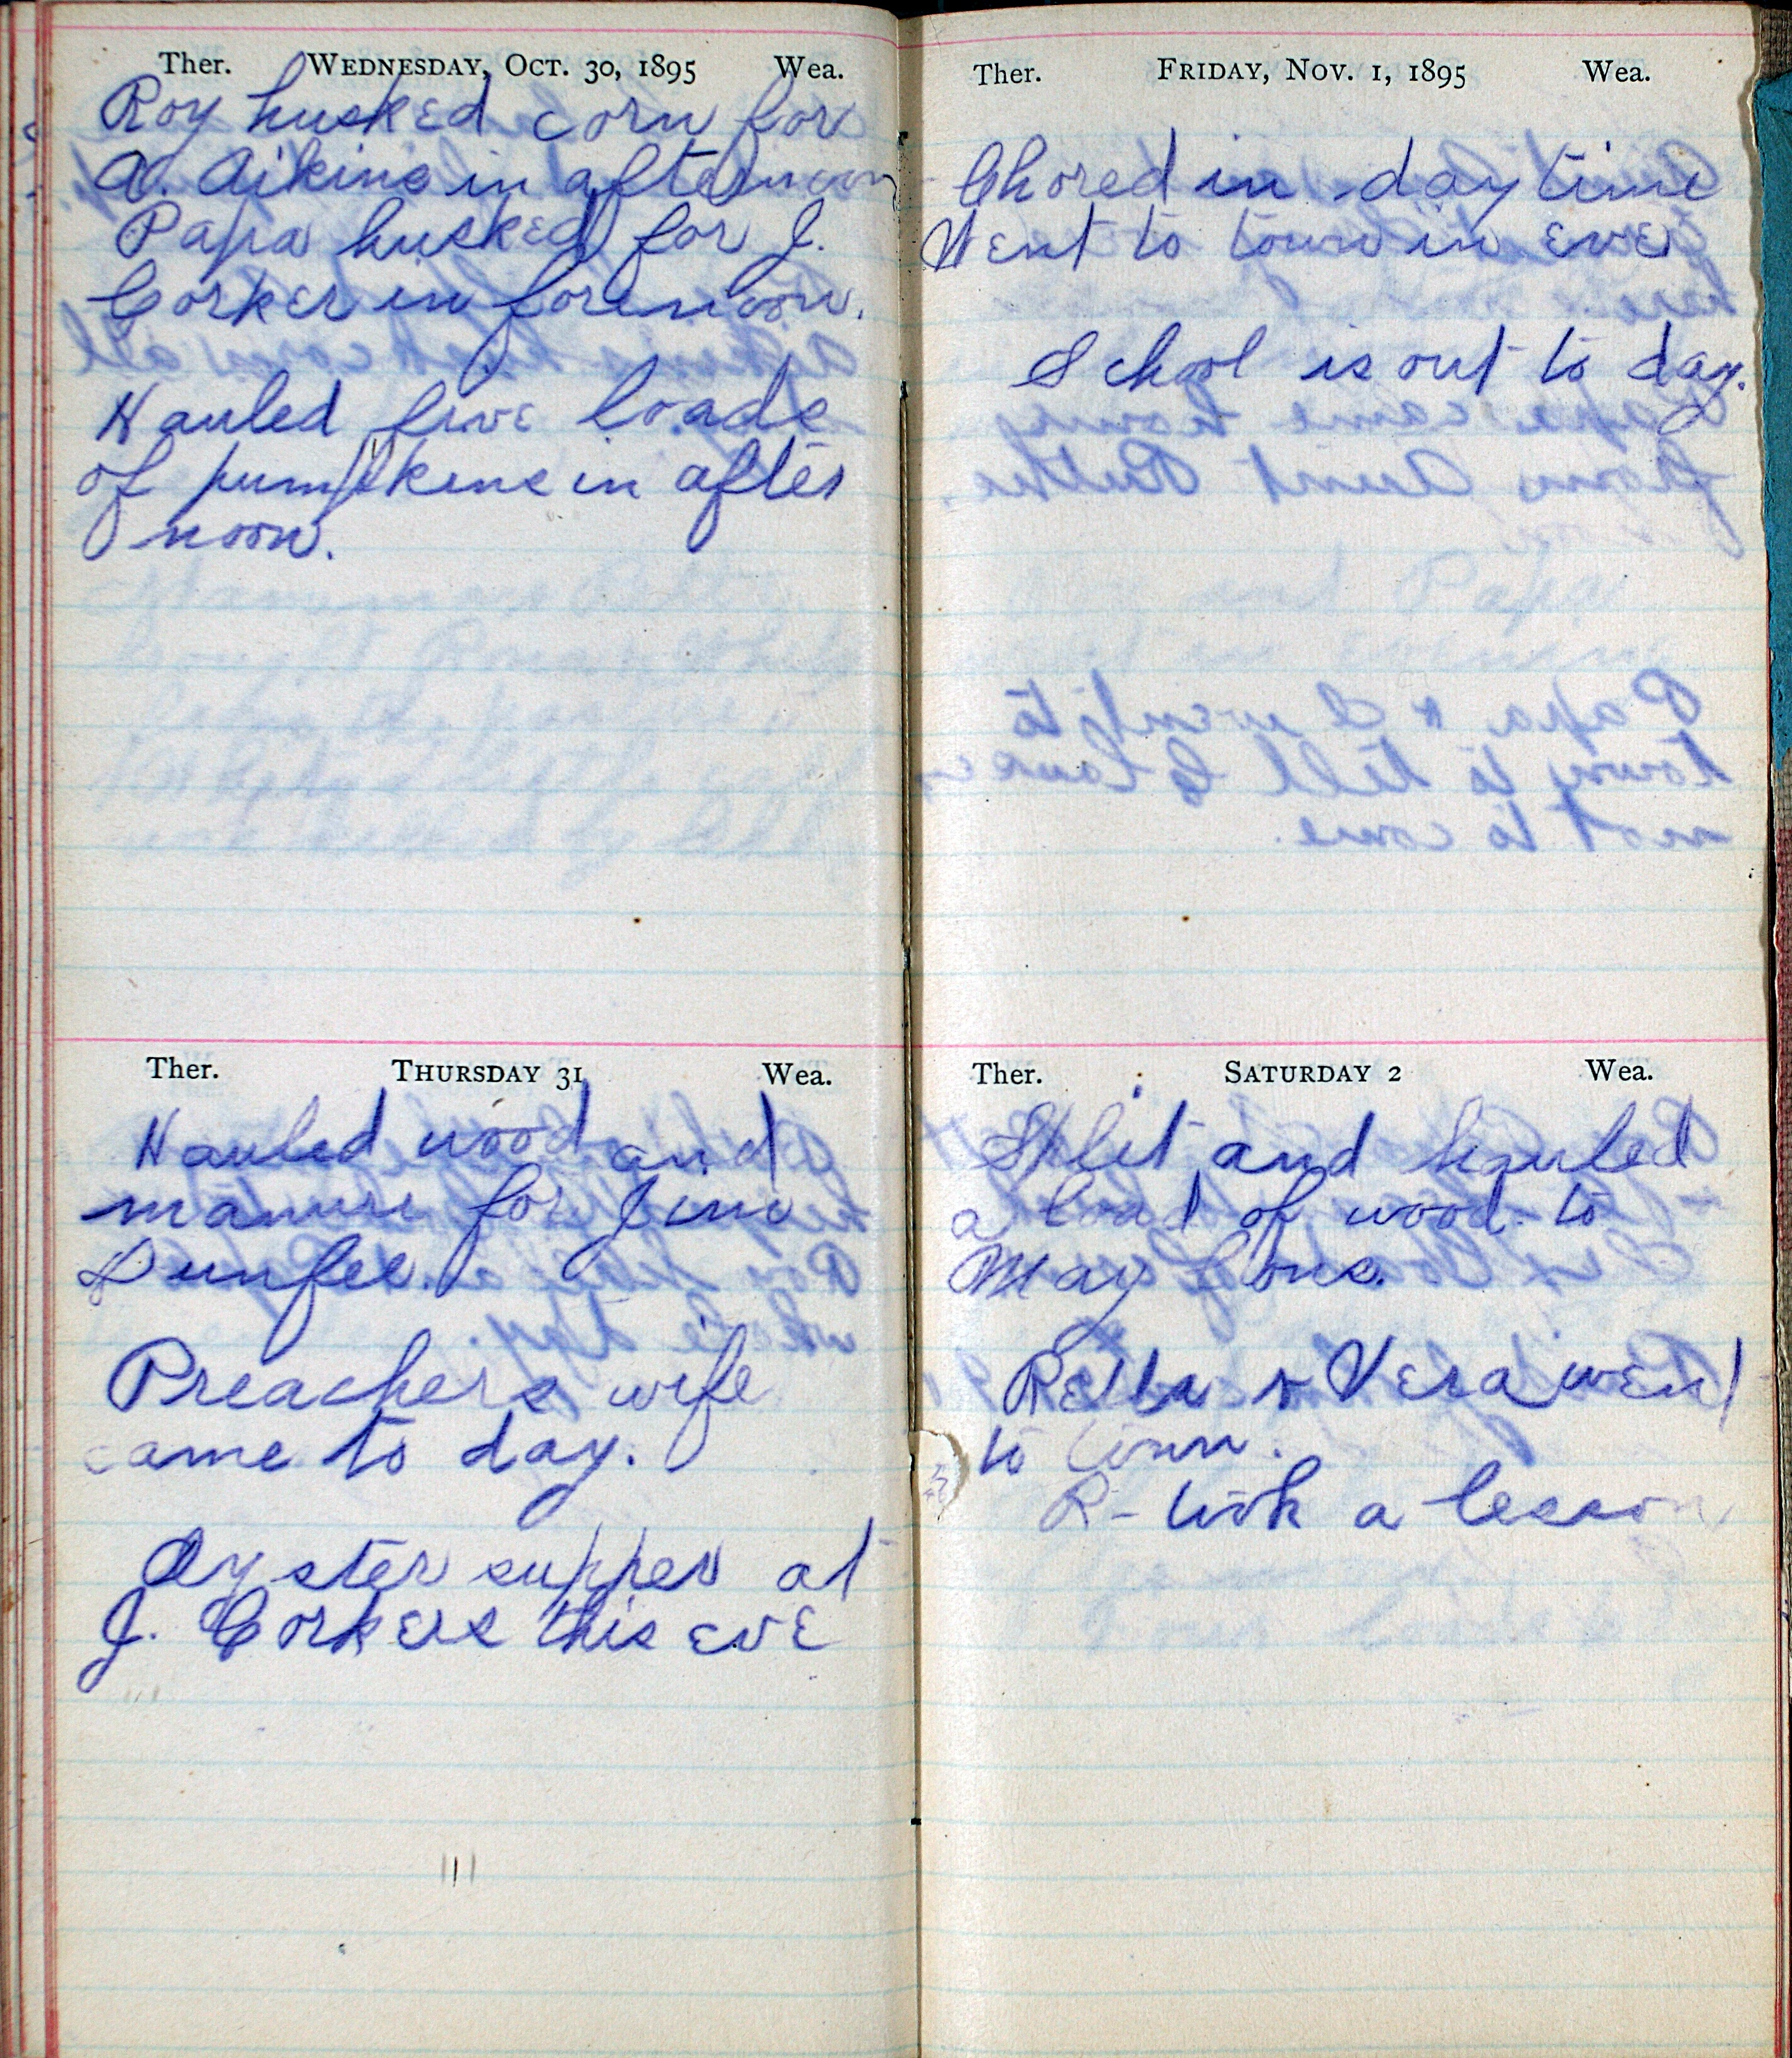 Ther. WEDNESDAY, OCT. 30, 1895 Wea.
Roy husked corn for
A. Aikins in afternoon
Papa husked for J.
Corker in forenoon.
Hauled five loads
of pumpkins in after
noon.
Ther. THURSDAY 31 Wea.
Hauled wood and
manure for Jim
Dunfee.
Preachers wife
came to day.
Oyster supper at
J. Corkers this eve
Ther. FRIDAY, NOV. 1, 1895 Wea.
Chored in daytime
Went to town in eve
School is out to day.
Ther. SATURDAY 2 Wea.
Split and hauled
a load of wood to
May
Rella & Vera went
to town.
R- took a lesson